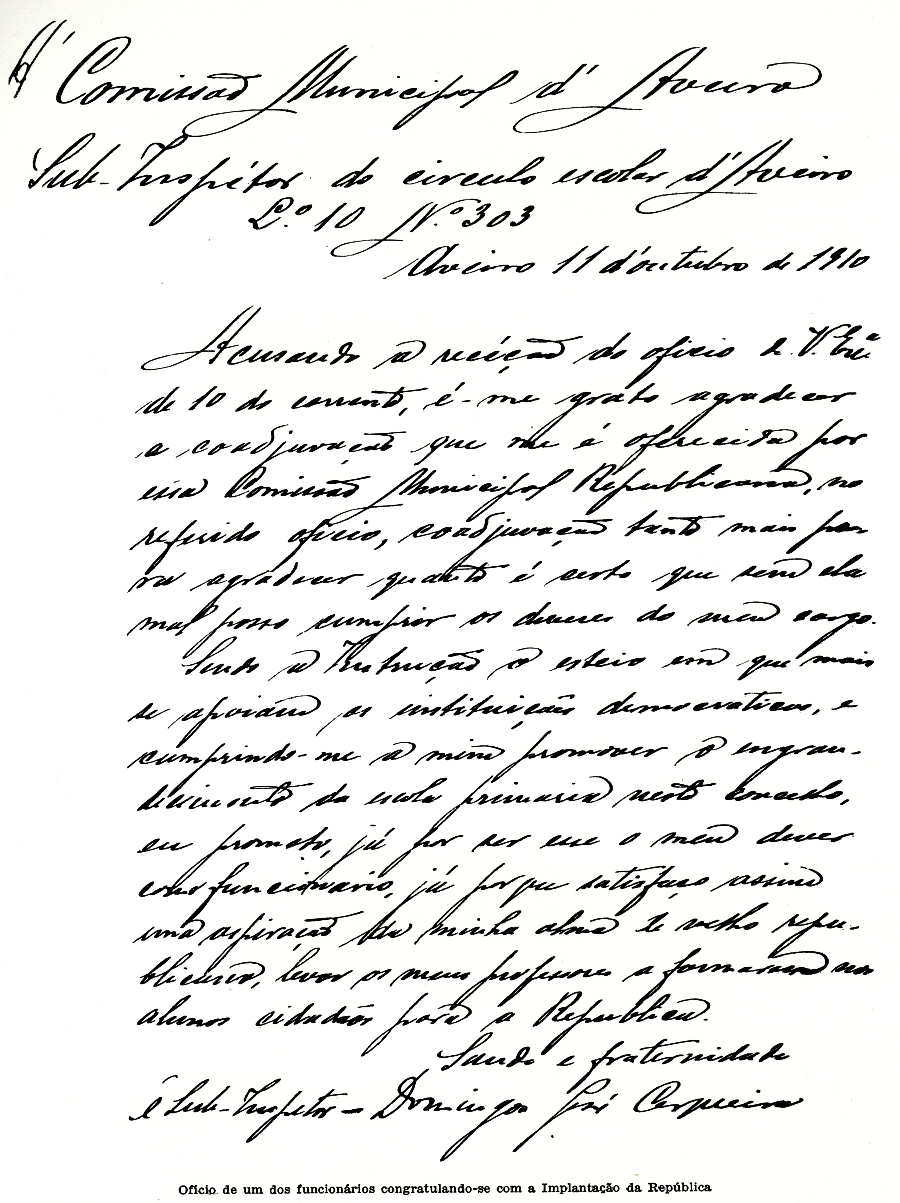 Á Comissão Municipal d'Aveiro
Sub-Inspétor do circulo escolar d'Aveiro
L.º 10 N.º 303
Aveiro 11 d'outubro de 1910
Acusando a recéção do oficio de V. Ex.ª
de 10 do corrente, é-me grato agradecer
a coadjuvação que me é oferecida por
essa Comissão Municipal Republicana, no
referido oficio, coadjuvação tanto mais pa-
ra agradecer quanto é certo que sem ela
mal posso cumprir os deveres do meu cargo.
Sendo a Instrução o esteio em que mais
se apoiam as instituições democraticas, e
cumprindo-me a mim promover o engran-
decimento da escola primaria neste concelho,
eu prometo, já por ser esse o meu dever
como funcionario, já porque satisfaço assim
uma aspiração da minha alma de velho repu-
blicano, levar os meus professores a formarem nos
alunos cidadãos para a Republica.
Saude e fraternidade
O Sub-Inspetor = Domingos José Cerqueira
Oficio de um dos funcionários congratulando-se com a Implantação da República